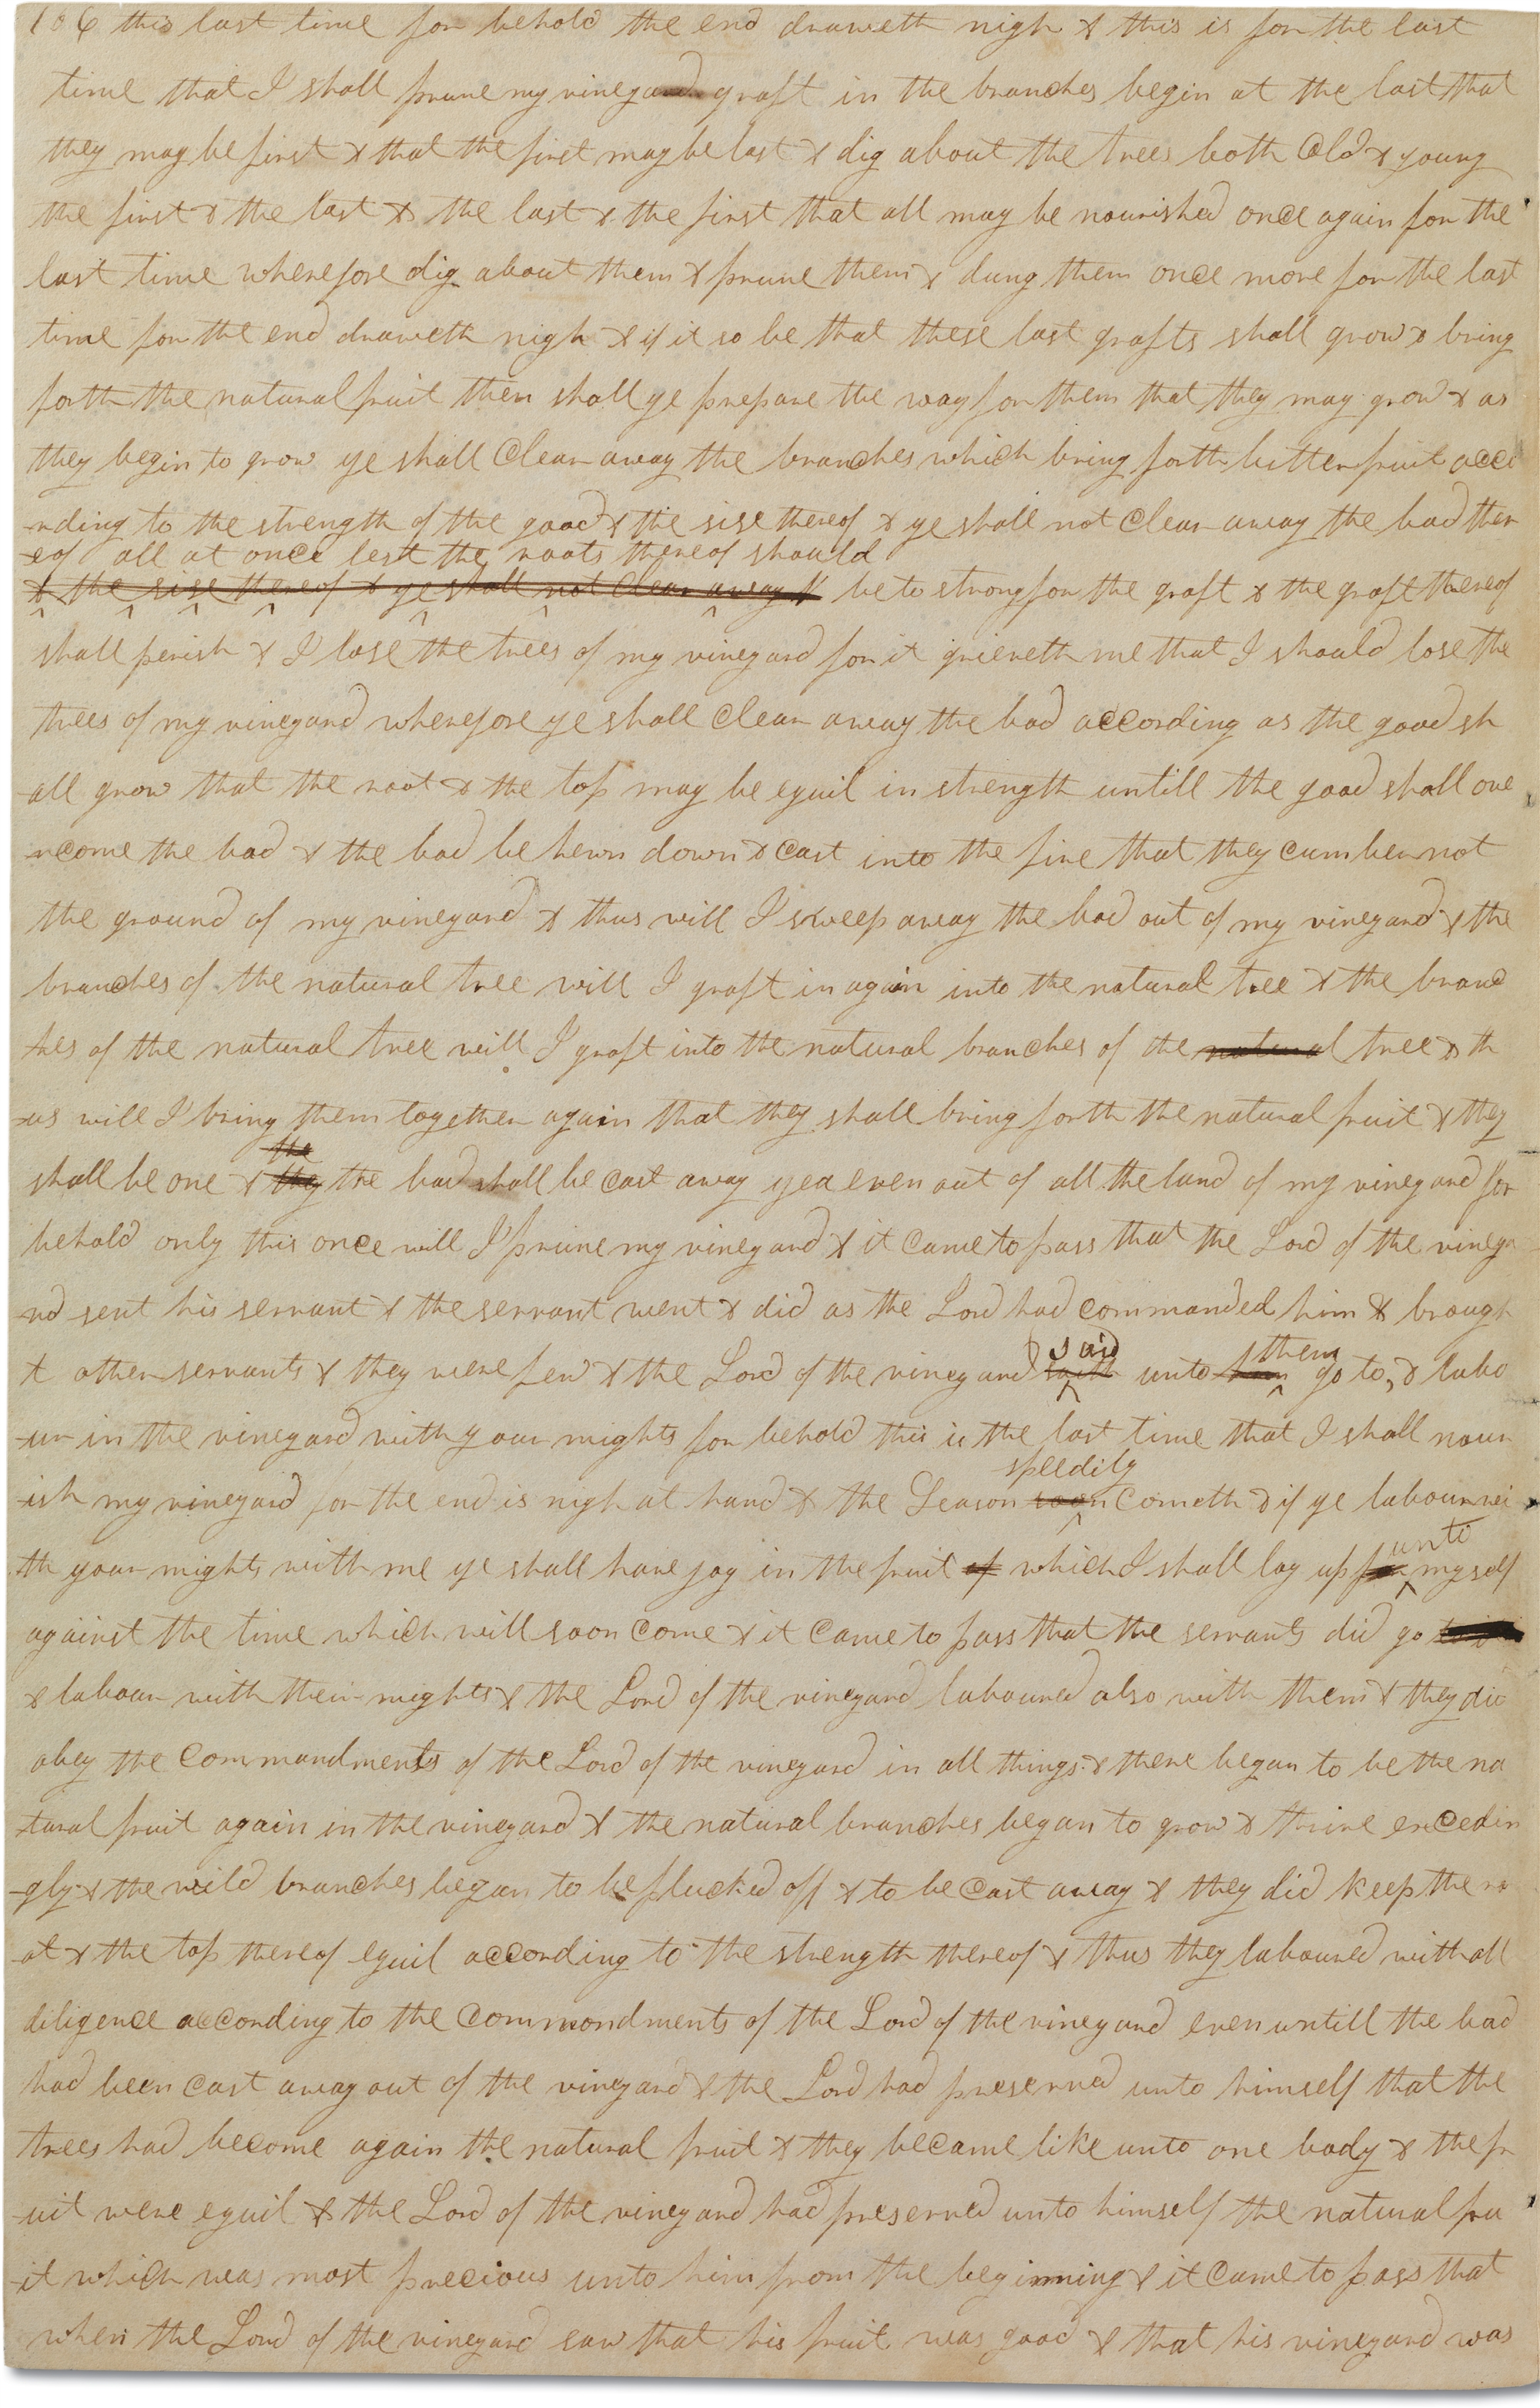 106 this last time for behold the end draweth nigh & this is for the last
time that I shall prune my vineyard graft in the branches begin at the last that
they may be first & that the first may be last & dig about the trees both Old & young
the first & the last & the last & the first that all may be nourished once again for the
last time wherefore dig about them & prune them & dung them once more for the last
time for the end draweth nigh & if it so be that these last grafts shall grow & bring
forth the natural fruit then shall ye prepare the way for them that they may grow & as
they begin to grow ye shall Clear away the branches which bring forth bitter fruit acco
-rding to the strength of the good & the sise thereof & ye shall not Clear away the bad ther
-eof all at once lest the roots thereof should
& the sise thereof & ye shall not Clear away be to strong for the graft & the graft thereof
shall perish & I lose the trees of my vineyard for it grieveth me that I should lose the
trees of my vineyard wherefore ye shall Clear away the bad according as the good sh
-all grow that the root & the top may be equil in strength untill the good shall ove
-rcome the bad & the bad be hewn down & Cast into the fire that they cumber not
the ground of my vineyard & thus will I sweep away the bad out of my vineyard & the
branches of the natural tree will I graft in again into the natural tree & the branc
hes of the natural tree will I graft into the natural branches of the natural tree & th
-us will I bring them together again that they shall bring forth the natural fruit & they
the
shall be one & they the bad shall be Cast away yea even out of all the land of my vineyard for
behold only this once will I prune my vineyard & it Came to pass that the Lord of the vineya
-rd sent his servant & the servant went & did as the Lord had commanded him & brough
said them
t other servants & they were few & the Lord of the vineyard saith unto him go to, & labo
-ur in the vineyard with your mights for behold this is the last time that I shall nour
speedily
-ish my vineyard for the end is nigh at hand & the Season soon Cometh & if ye labour wi
unto
-th your mights with me ye shall have joy in the fruit of which I shall lay up for myself
against the time which will soon Come & it Came to pass that the servants did go
& labour with their mights & the Lord of the vineyard laboured also with them & they did
obey the Commandments of the Lord of the vineyard in all things & there began to be the na
-tural fruit again in the vineyard & the natural branches began to grow & thrive excedin
-gly & the wild branches began to be plucked off & to be Cast away & they did keep the ro
-ot & the top thereof equil according to the strength thereof & thus they laboured with all
diligence according to the Commondments of the Lord of the vineyard even untill the bad
had been Cast away out of the vineyard & the Lord had preserved unto himself that the
trees had become again the natural fruit & they became like unto one body & the fr
-uit were equil & the Lord of the vineyard had preserved unto himself the natural fru
-it which was most precious unto him from the beginning & it Came to pass that
when the Lord of the vineyard saw that his fruit was good & that his vineyard was